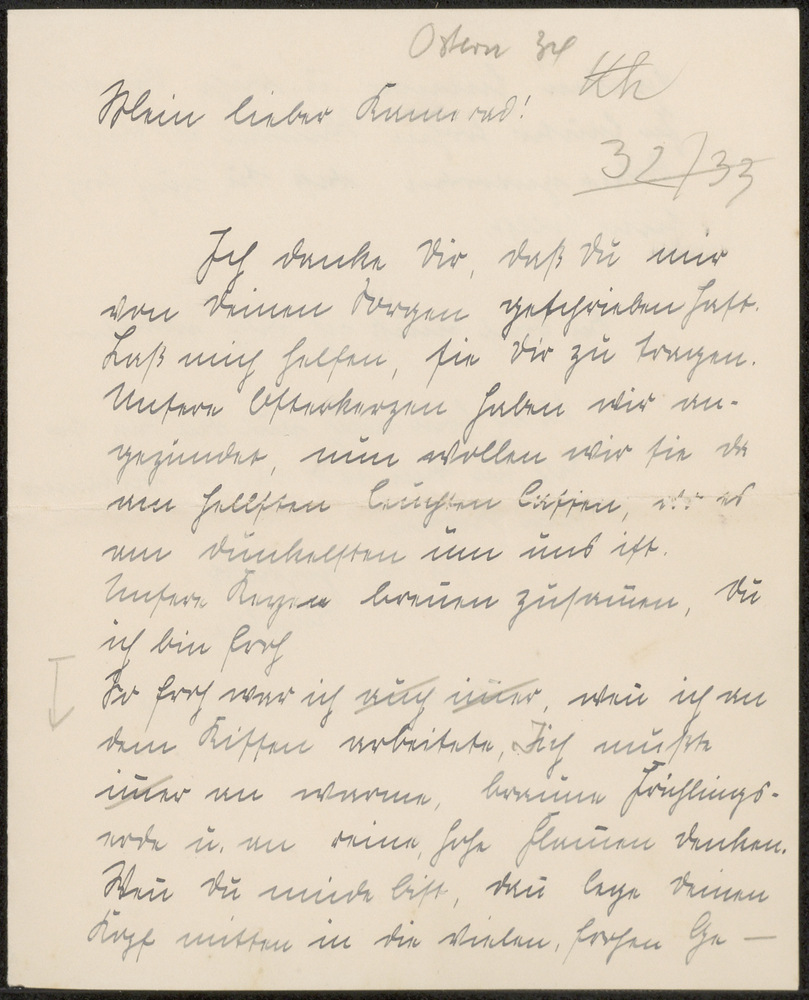 Ostern 34
Kk
Mein lieber Kamerad!
32/33
Ich danke Dir, daß Du mir
von Deinen Sorgen geschrieben hast.
Laß mich helfen, sie Dir zu tragen.
Unsere Osterkerzen haben wir an-
gezündet, nun wollen wir sie da
am hellsten leuchten lassen, wo es
am dunkelsten um uns ist.
Unsere Kerzen brennen zusammen, Du
ich bin froh
So froh war ich auch immer, wenn ich an
dem Kissen arbeitete, Ich mußte
immer an warme, braune Frühlings-
erde u. an reine, hohe Flammen denken.
Wenn Du müde bist, dann lege Deinen
Kopf mitten in die vielen, frohen Ge-